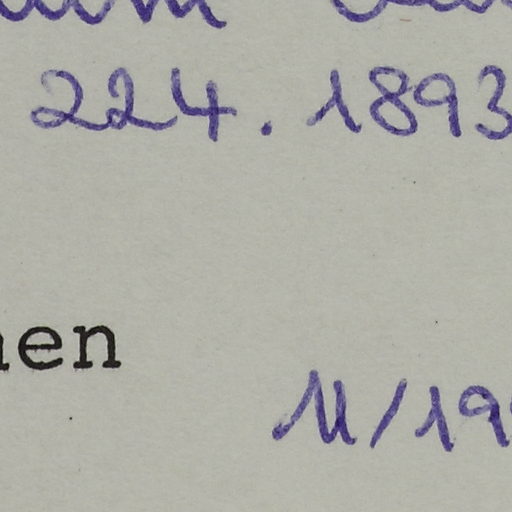 224.1893
en
11/19